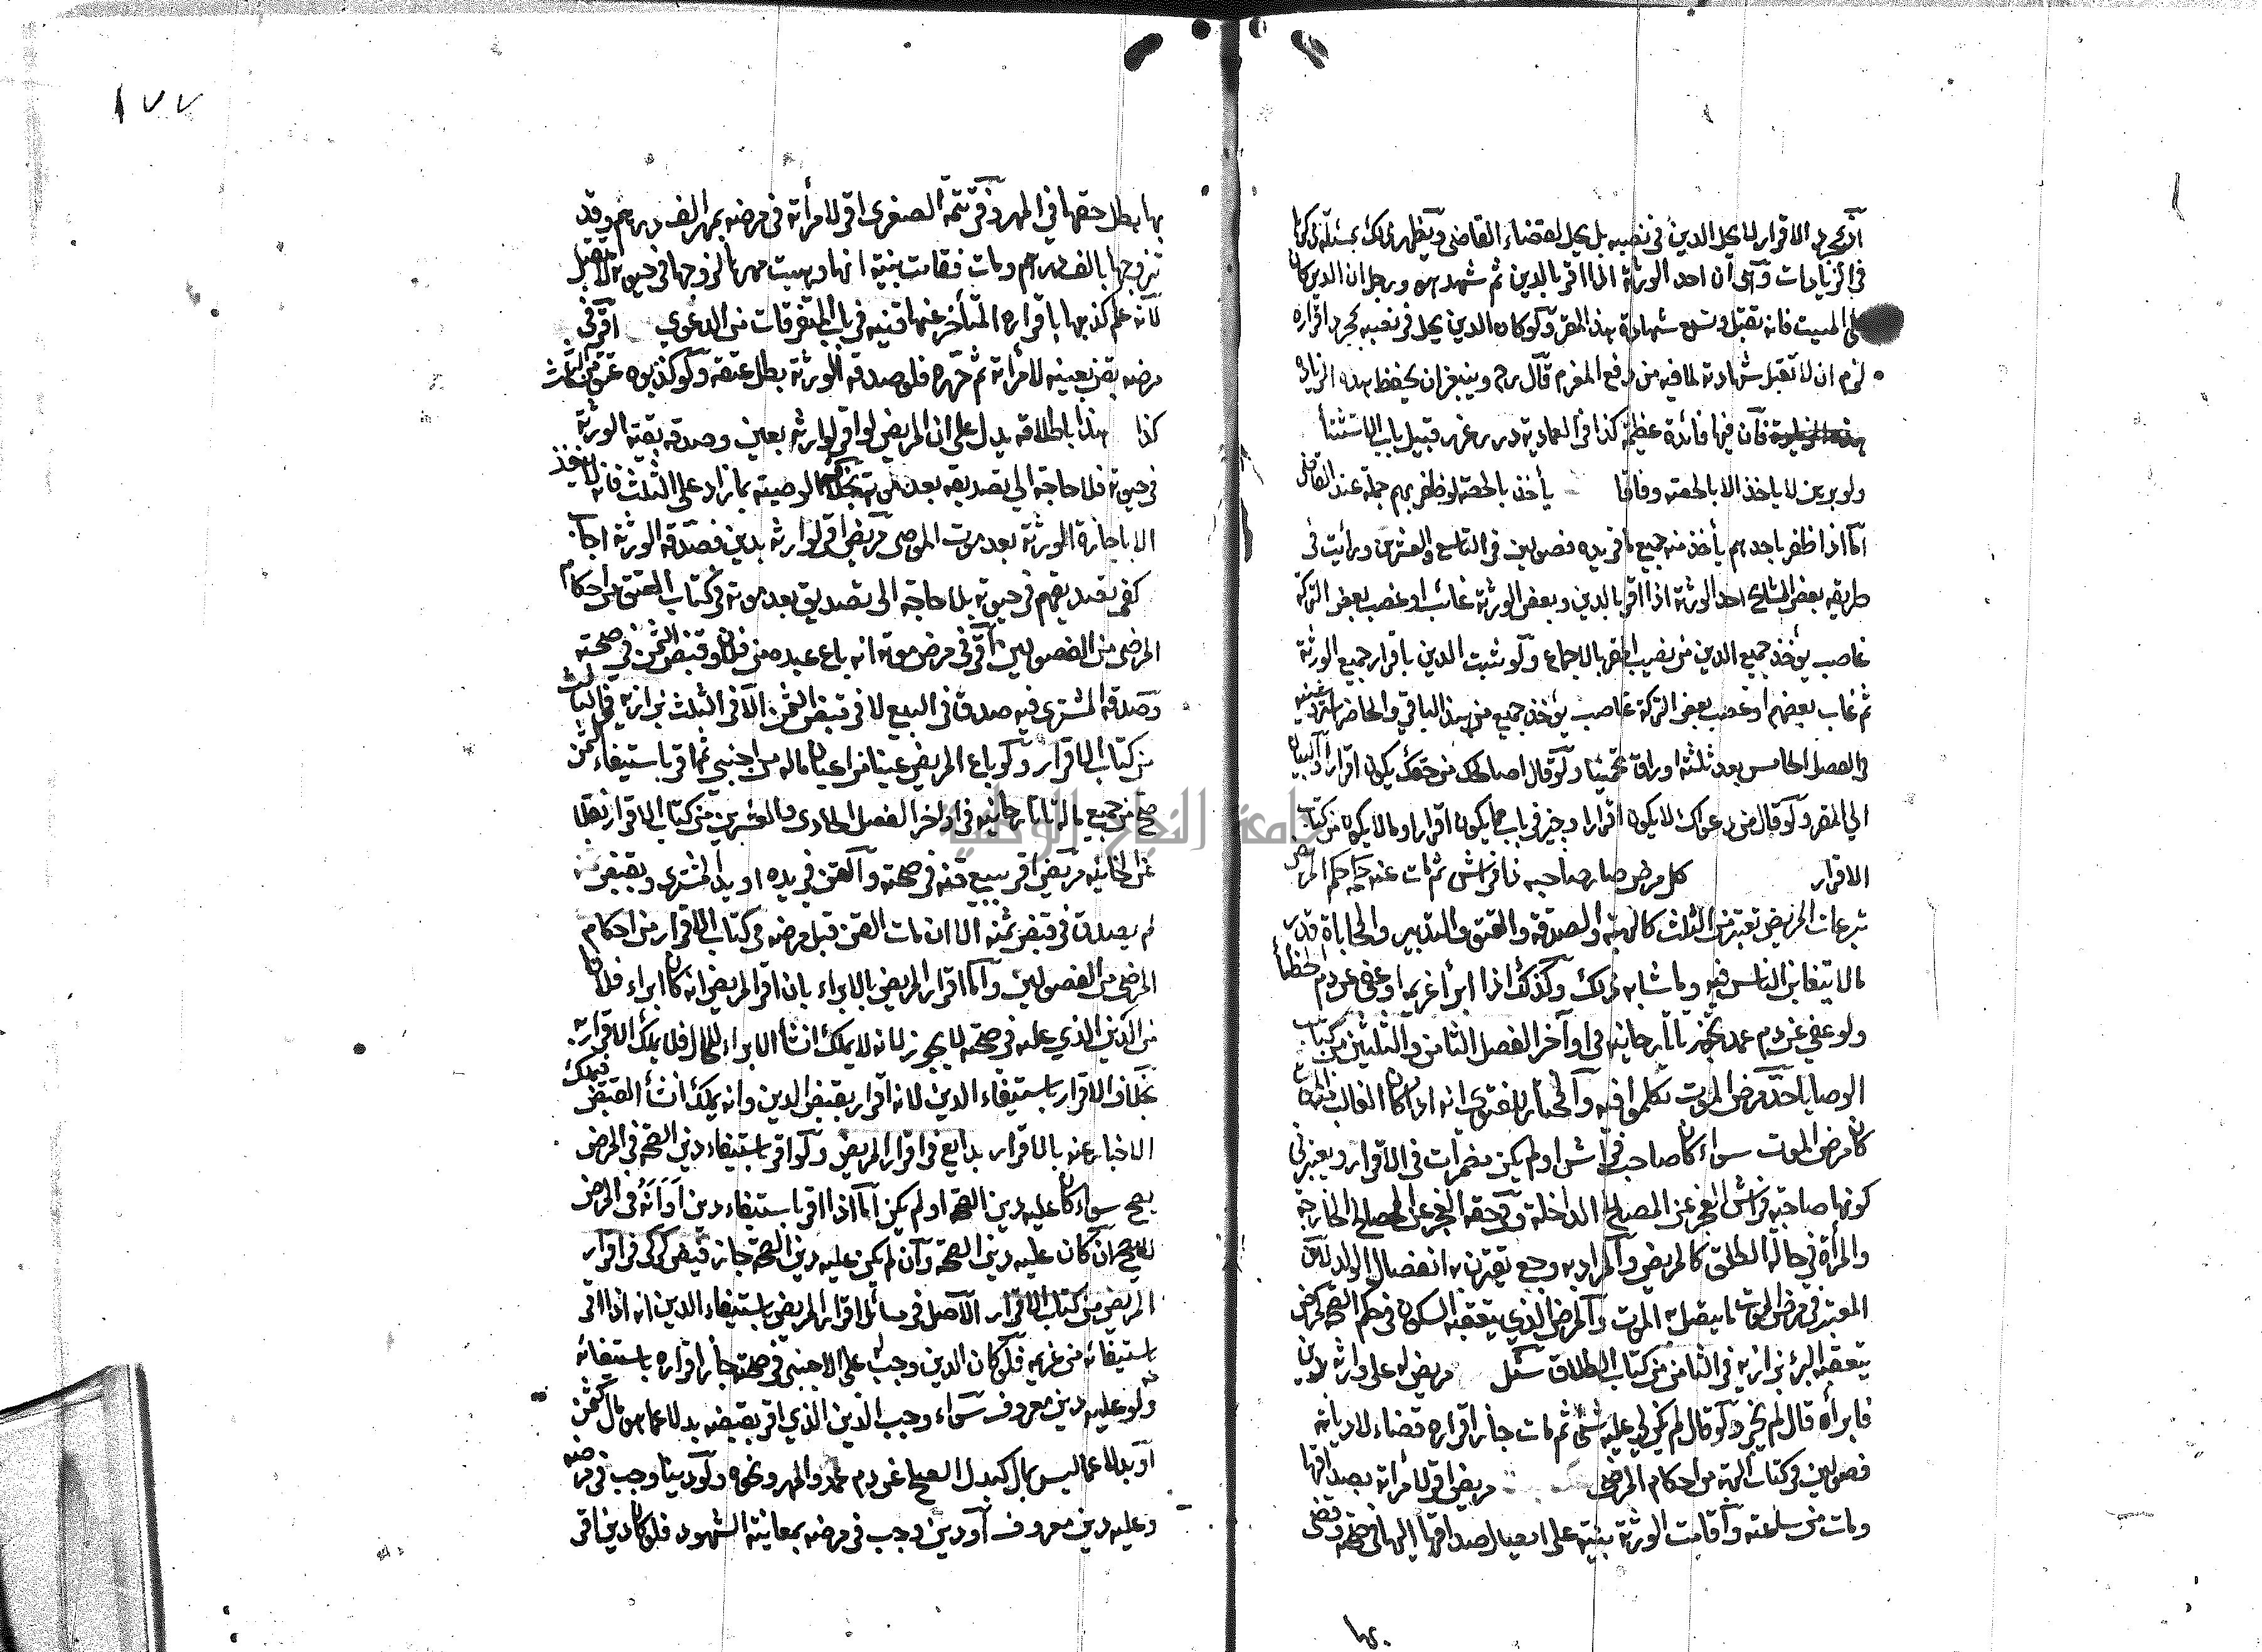 اذ بمجرد الاقرار لا يحل الدين في نصيبه بل يحل بقضاء القاضي ويظهر ذلك بمسئلة ذكرها
في الزيادات وهي ان احد الورثة اذا اقر بالدين ثم شهد هو ورجل ان الدين كان
على الميت فانه تقبل وتسمع شهادة هذا المقر ولو كان الدين يحل في نصيبه بمجرد اقراره
لزم ان لا تقبل شهادته لما فيه من دفع المغرم قال رحم وينبغي ان يحفظ هذه الزيادة
فان فيها فائدة عظيمة كذا في العمادية درر غرر قبيل باب الاستثناء
ولو برهن لا ياخذ الا بالحصة وفاقا يأخذ بالحصة لو ظفر بهم جملة عند القاضي
اما اذا ظفر باحدهم يأخذ منه جميع ما في يده فصولين في التاسع والعشرين ورأيت في
طريقة بعض المشايخ احد الورثة اذا اقر بالدين وبعض الورثة غائب او غصب بعض التركة
غاصب يؤخذ جميع الدين من نصيب المقر بالاجماع ولو ثبت الدين باقرار جميع الورثة
ثم غاب بعضهم او غصب بعض التركة غاصب يؤخذ جميع من هذا الباقي والحاضر
في الفصل الخامس بعد ثلثة اوراق تخمينا ولو قال اصالحك من حقك يكون اقرارا والبيان
الى المقر ولو قال من دعواك لا يكون اقرارا وجيز في باب ما يكون اقرارا وما لا يكون من كتاب
الاقرار كل مرض صار صاحبه ذا فراش ثم مات عنه حكم المرض
تبرعات المريض تعتبر من الثلث كالهبة والصدقة والعتق والتدبير والمحاباة قدر
ما لا يتغابن الناس فيه وما شابه ذلك وكذلك اذا ابرأ غريما او عفى عن دم الخطأ
ولو عفي عن دم عمد يجوز تاتارخانية في اواخر الفصل الثامن والثلثين من كتاب
الوصايا حد مرض الموت تكلموا فيه والمختار للفتوى انه اذا كان الغالب منه الموت
كان مرض الموت سواء كان صاحب فراش او لم يكن مضمرات في الاقرار ويعتبر في
كونها صاحبة فراش العجز عن المصالح الداخلة وفي حقه العجز عن المصالح الخارجة
والمرأة في حالة الطلق كالمريض والمراد به وجع تقترن به انفصال الولد لان
المعتبر في مرض الموت ما يتصل به الموت والمرض الذي يتعقبه السكون في حكم الصحة كمرض
يتعقبه البرء بزازية في الثامن من كتاب الطلاق سئل مريض له على وارثه دين
فابرأه قال لم يجز ولو قال لم يكن لي عليه شئ ثم مات جاز اقراره قضاء لا ديانة
فصولين في كتاب الهبة من احكام المرضى مريض اقر لامرأته بصداقها
ومات من ساعته واقامت الورثة بينة على ايصال صداقها اليها في صحته وقضى
بها
١٧٧
بها بطل حقها في المهر وفي تتمة الصغرى اقر لامرأته في مرضه بمهر الف درهم وقد
تزوجها بالف درهم ومات فقامت بينة انها وهبت مهرها لزوجها في حيوته لا تقبل
لانه علم كذبها باقراره المتأخر عنها قنيه في باب المتفرقات من الدعوى اقر في
مرضه بقن بعينه لامرأته ثم حرره فلو صدقه الورثة بطل عتقه ولو كذبوه عتق من الثلث
كذا هذا باطلاقه يدل على ان المريض لو اقر لوارثه بعين وصدقه بقية الورثة
في حيوته فلا حاجة الى تصديقه بعد موته بخلاف الوصية بما زاد على الثلث فانه لا ينفذ
الا باجازة الورثة بعد موت الموصي مريض اقر لوارثه بدين فصدقه الورثة اجاب
كفى تصديقهم في حيوته بلا حاجة الى تصديق بعد موته في كتاب العتق من احكام
المرضى من الفصولين اقر في مرض موته انه باع عبده من فلان وقبض الثمن في صحته
وصدقه المشتري فيه صدق في البيع لا في قبض الثمن الا في الثلث بزازية في الثالث
من كتاب الاقرار ولو باع المريض عينا من اعيان ماله من اجنبي ثم اقر باستيفاء الثمن
صح من جميع ماله تاتارخانية في اواخر الفصل الحادى والعشرين من كتاب الاقرار نقلا
عن الخانية مريض اقر ببيع قنه في صحته والقن في يده او يد المشتري وبقبض ثمنه
لم يصدق في قبض ثمنه الا ان مات القن قبل مرضه في كتاب الاقرار من احكام
المرضى من الفصولين واما اقرار المريض بالابراء بان اقر المريض انه كان ابراء فلانا
من الدين الذي عليه في صحته لا يجوز لانه لا يملك انشأ الابراء للحال فلا يملك الاقرار به
بخلاف الاقرار باستيفاء الدين لانه اقرار بقبض الدين وانه يملك انشأ القبض فيملك
الاخبار عنه بالاقرار بدايع في اقرار المريض ولو اقر باستيفاء دين الصحة في المرض
يصح سواء كان عليه دين الصحة او لم يكن اما اذا اقر باستيفاء دين ادانه في المرض
لا يصح ان كان عليه دين الصحة وان لم يكن عليه دين الصحة جاز فيض كركى في اقرار
المريض من كتاب الاقرار الاصل في مسائل اقرار المريض باستيفاء الدين انه اذا اقر
باستيفائه من غريمه فلو كان الدين وجب له على الاجنبي في صحته جاز اقراره باستيفائه
ولو عليه دين معروف سواء وجب الدين الذي اقر بقبضه بدلا عما هو مال كثمن
او بدلا عما ليس بمال كبدل الصلح عن دم عمد والمهر ونحوه ولو دينا وجب في مرضه
وعليه دين معروف او دين وجب في مرضه بمعاينة الشهود فلو كان دين اقر
جامعة النجاح الوطنية